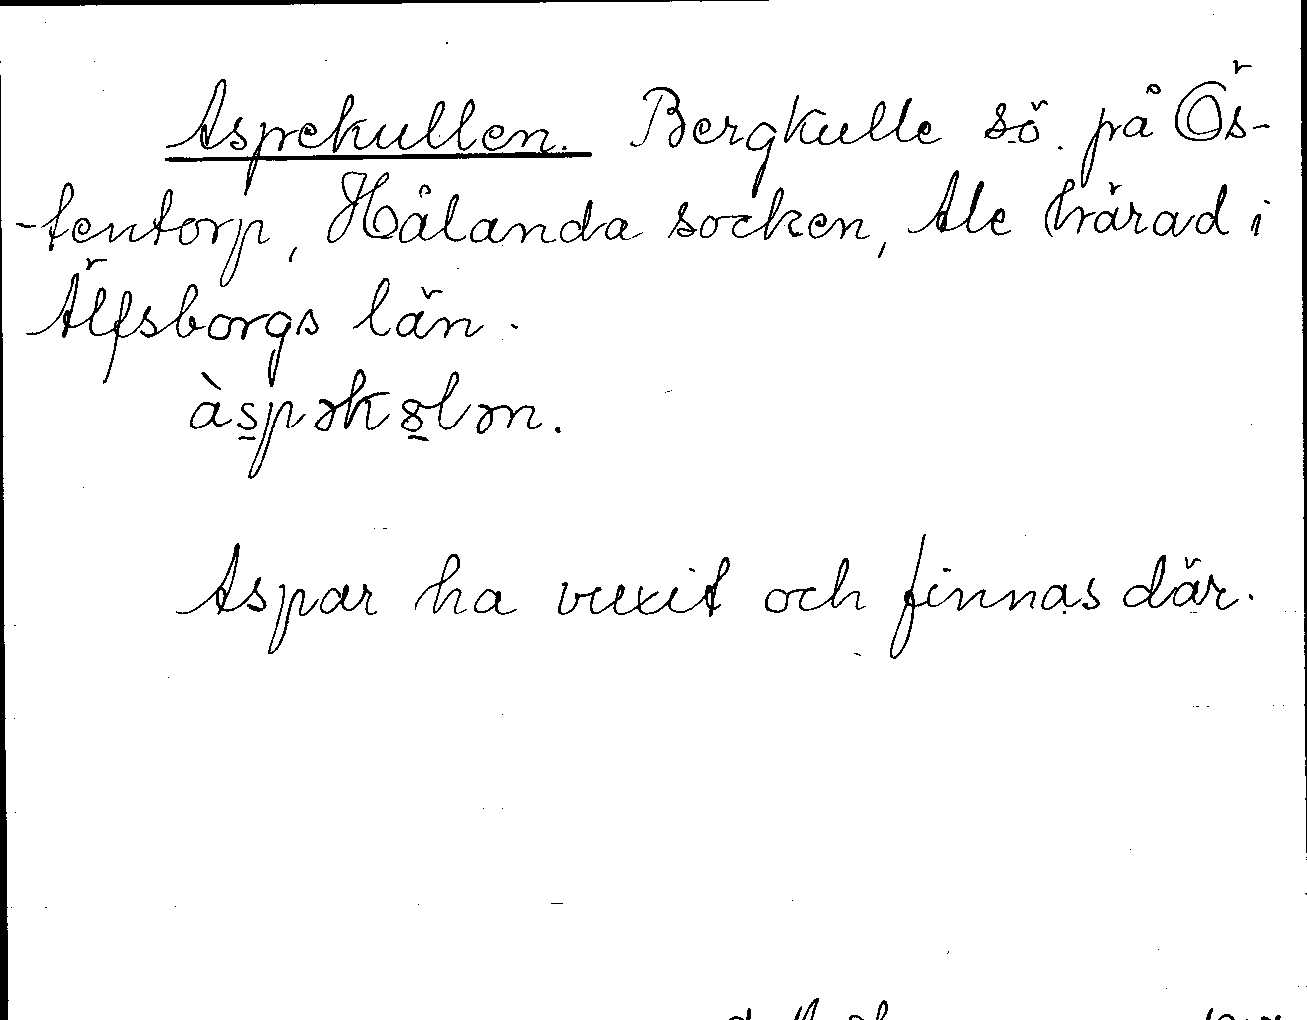 Aspekullen. Bergkulle sö. på Ös-
-tentorp, Hålanda socken, Ale härad i
Älfsborgs län.
às̲pəkȣ̲lən.
Aspar ha vuxit och finnas där.